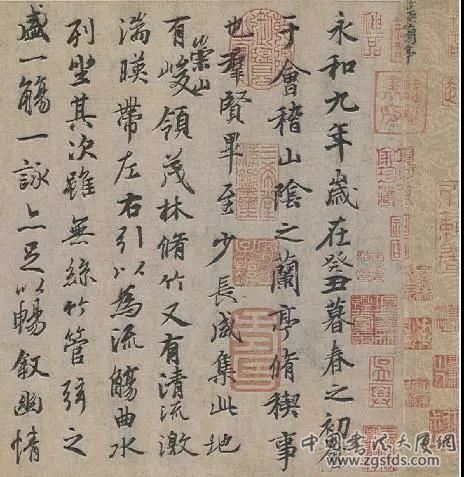 永和九年歲在癸丑暮春之初會
于會稽山陰之蘭亭脩稧事
也羣賢畢至少長咸集此地
有崇山峻領茂林脩竹又有清流激
湍暎帶左右引以為流觴曲水
列坐其次雖無絲竹管弦之
盛一觴一詠亦足以暢敘幽情
中国书法大厦网
www.zgsfds.com